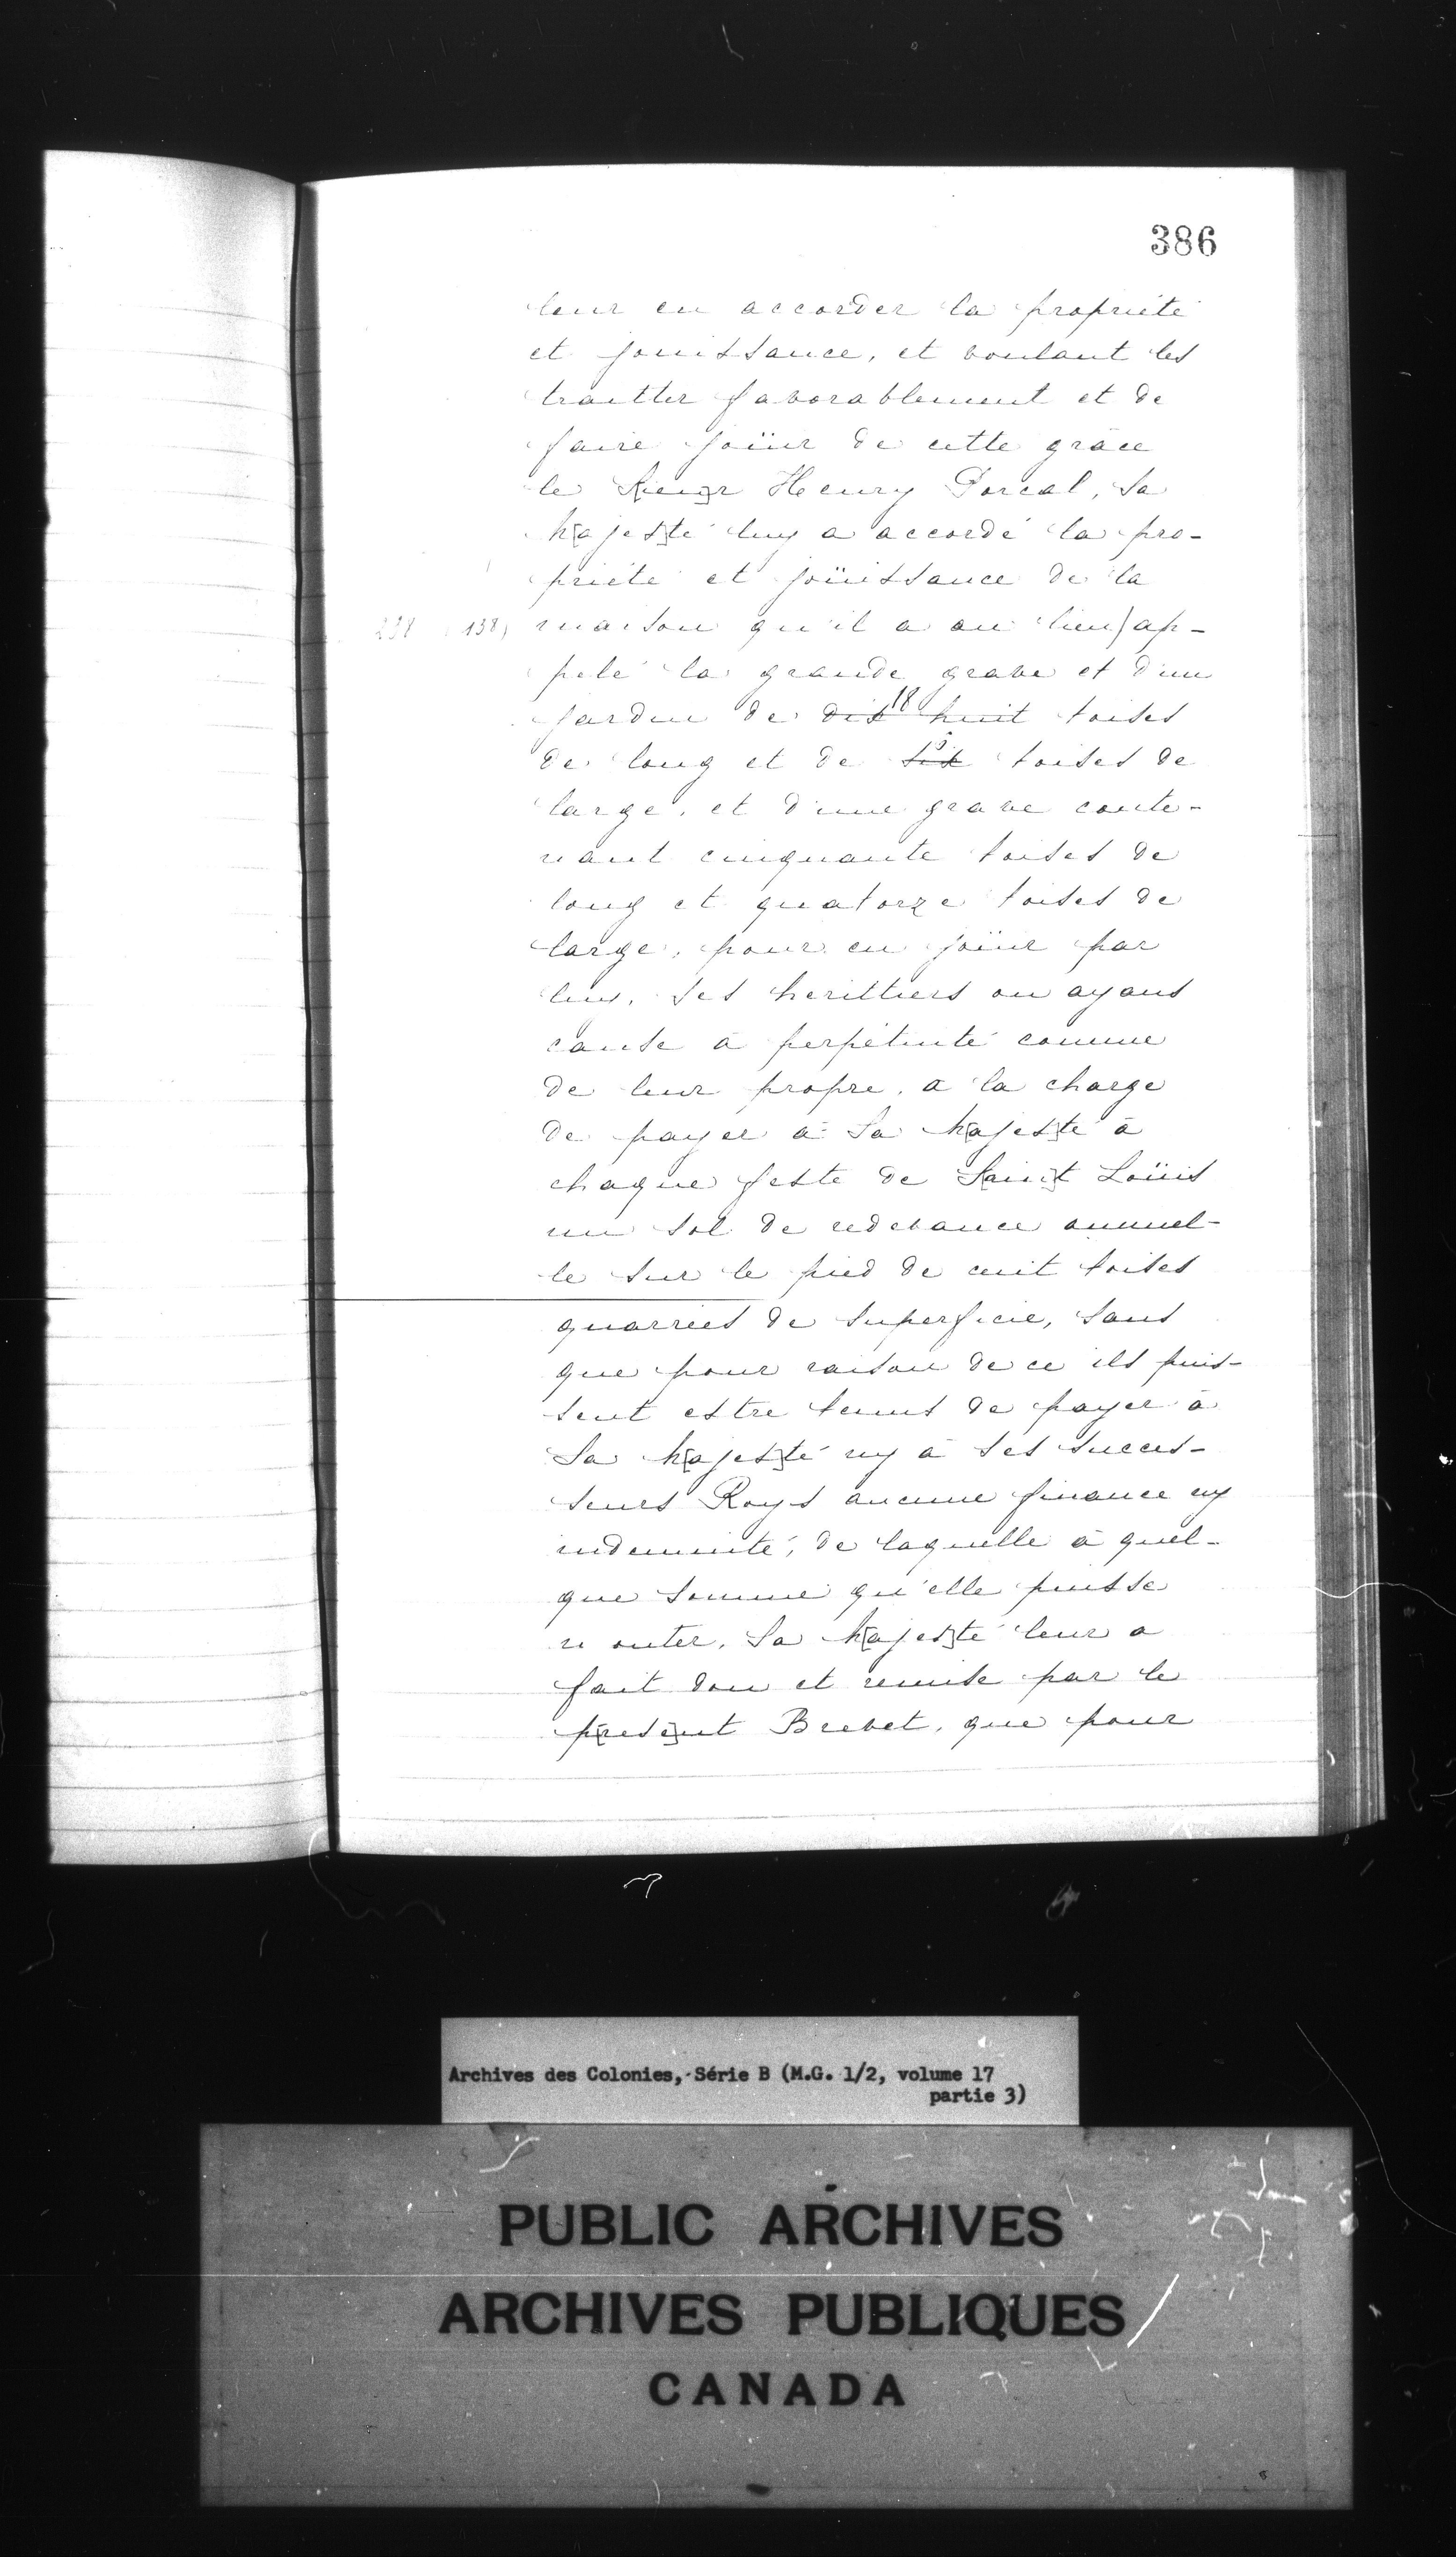 386
leur en accorder la propriété
et jouissance, et voulant les
traitter favorablement et de
faire joüir de cette grâce
le S[ieu]r Henry Porcal, Sa
M[ajes]té luy a accordé la pro-
priété et joüissance de la
(138) maison qu'il a au lieu/ap-
pelé la grande grave et d'un
jardin de dix huit 18 toises
de long et de six toises de
large, et d'une grave conte-
nant cinquante toises de
long et quatorze toises de
large, pour en joüir par
luy, ses herittiers ou ayans
cause à perpétuité comme
de leur propre, a la charge
de payer à Sa M[ajes]té à
chaque feste de S[ain]t Loüis
un sol de redevance annuel-
le sur le pied de cent toises
quarrées de superficie, sans
que pour raison de ce ils puis-
sent estre tenus de payer à
Sa M[ajes]té ny à ses succes-
seurs Roys aucune finance ny
indemnité, de laquelle à quel-
que somme qu'elle puisse
monter, Sa M[ajes]té leur a
fait don et remise par le
p[rese]nt Brevet, que pour
Archives des Colonies, Série B (M.G. 1/2, volume 17
partie 3)
PUBLIC ARCHIVES
ARCHIVES PUBLIQUES
CANADA